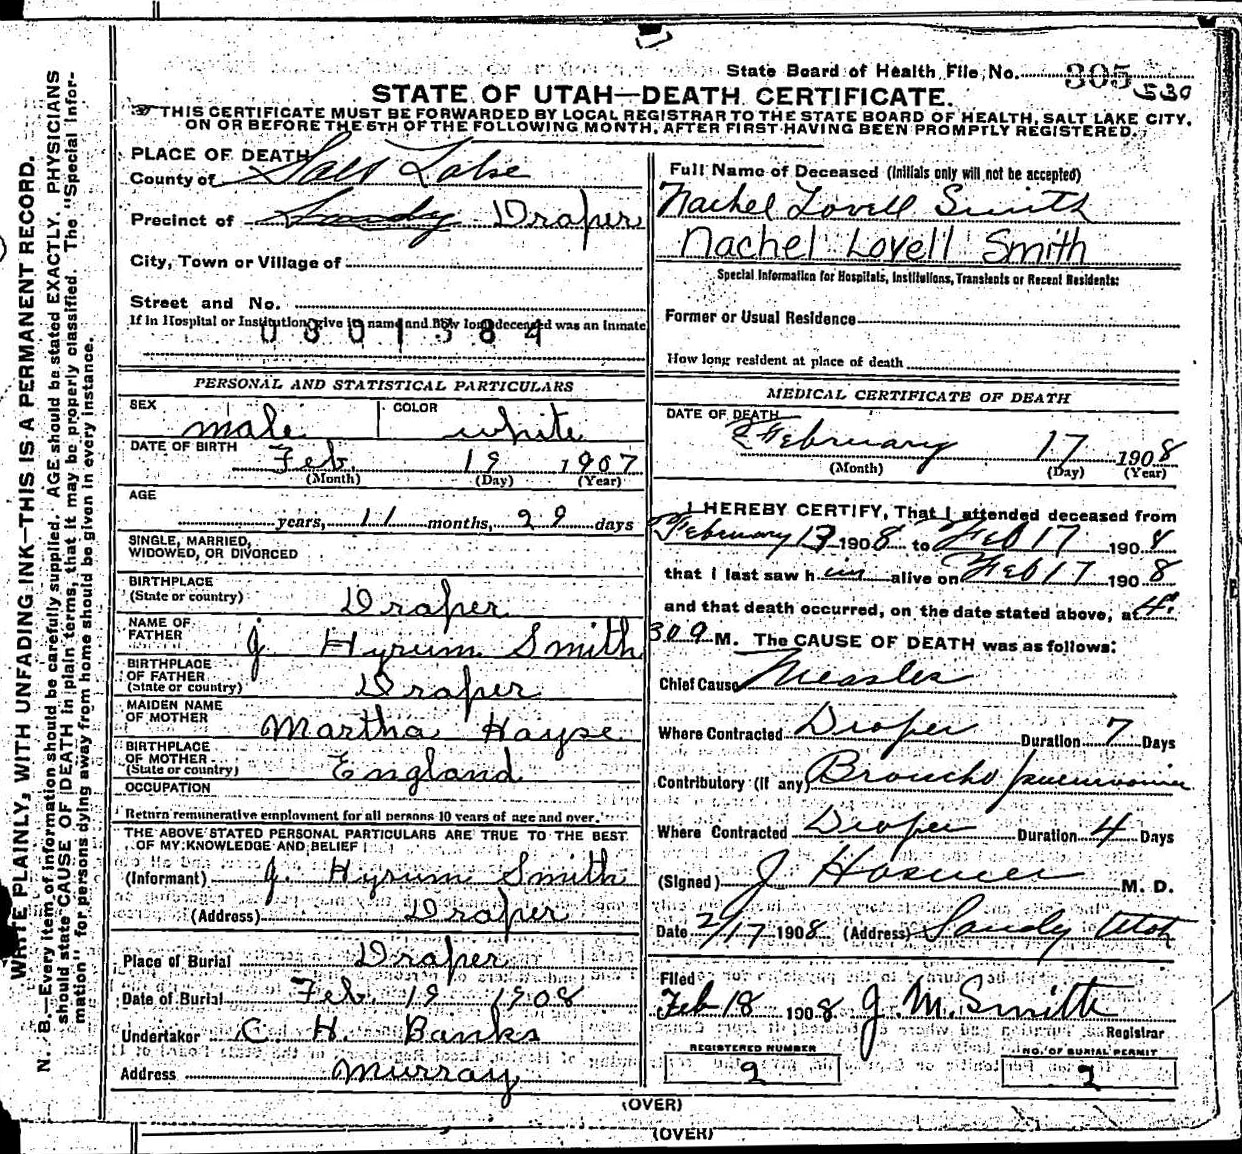 State Board of Health File No. 305 530
STATE OF UTAH—DEATH CERTIFICATE.
THIS CERTIFICATE MUST BE FORWARDED BY LOCAL REGISTRAR TO THE STATE BOARD OF HEALTH, SALT LAKE CITY,
ON OR BEFORE THE 5TH OF THE FOLLOWING MONTH, AFTER FIRST HAVING BEEN PROMPTLY REGISTERED.
WRITE PLAINLY, WITH UNFADING INK—THIS IS A PERMANENT RECORD.
N. B.—Every item of information should be carefully supplied. AGE should be stated EXACTLY. PHYSICIANS
should state CAUSE OF DEATH in plain terms, that it may be properly classified. The "Special Infor-
mation" for persons dying away from home should be given in every instance.
PLACE OF DEATH
County of Salt Lake
Precinct of Sandy Draper
City, Town or Village of
Street and No.
If in Hospital or Institution, give its name and how long deceased was an inmate
0801384
PERSONAL AND STATISTICAL PARTICULARS
SEX male COLOR white
DATE OF BIRTH Feb. 19 1907
(Month) (Day) (Year)
AGE
years, 11 months, 29 days
SINGLE, MARRIED,
WIDOWED, OR DIVORCED
BIRTHPLACE
(State or country) Draper
NAME OF
FATHER J. Hyrum Smith
BIRTHPLACE
OF FATHER
(State or country) Draper
MAIDEN NAME
OF MOTHER Martha Hayse
BIRTHPLACE
OF MOTHER
(State or country) England
OCCUPATION
Return remunerative employment for all persons 10 years of age and over.
THE ABOVE STATED PERSONAL PARTICULARS ARE TRUE TO THE BEST
OF MY KNOWLEDGE AND BELIEF
(Informant) J. Hyrum Smith
(Address) Draper
Place of Burial Draper
Date of Burial Feb. 19 1908
Undertaker C. H. Banks
Address Murray
Full Name of Deceased (Initials only will not be accepted)
Nachel Lovell Smith
Nachel Lovell Smith
Special Information for Hospitals, Institutions, Transients or Recent Residents:
Former or Usual Residence
How long resident at place of death
MEDICAL CERTIFICATE OF DEATH
DATE OF DEATH
February 17 1908
(Month) (Day) (Year)
I HEREBY CERTIFY, That I attended deceased from
February 13 1908 to Feb 17 1908
that I last saw him alive on Feb 17 1908
and that death occurred, on the date stated above, at 4:
30 M. The CAUSE OF DEATH was as follows:
Chief Cause Measles
Where Contracted Draper Duration 7 Days
Contributory (If any) Broncho pneumonia
Where Contracted Draper Duration 4 Days
(Signed) J Hosmer M. D.
Date 2/17 1908 (Address) Sandy Utah
Filed
Feb 18 1908 J. M. Smith
Registrar
REGISTERED NUMBER
2
NO. OF BURIAL PERMIT
2
(OVER)
(OVER)